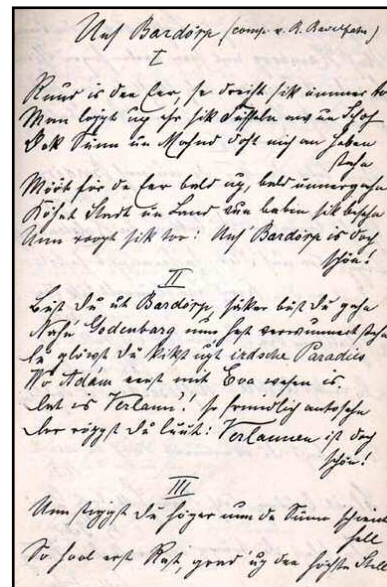 Uns Bardörp (comp. v. R.
I
Rund is dee Eer, se dreiht sik ümmer to
Man loppt up ehr sik Tüffeln av un Schoh
Ook Sünn un Mohnd doht nich an Heben
stahn
Mööt för de Eer bald up, bald ünnergahn
Köhnt Stadt un Land vun baben sik besehn
Unn roopt sik tor: Uns Bardörp is doch
schön!
II
Büst du ut Bardörp, seker büst du gahn
Nah'n Godenbarg unn hest verwunnert stahn
Du glöwst du kikst int irdsche Paradies
Wo Adam eerst mit Eva wesen is.
Dat is Verlann! so fründlich antosehn
Dor röppst du luut: Verlannen ist doch
schön!
III
Unn stiggst du höger unn de Sünn schient
hell
So haal erst Rast, grad' up den höchste Stell